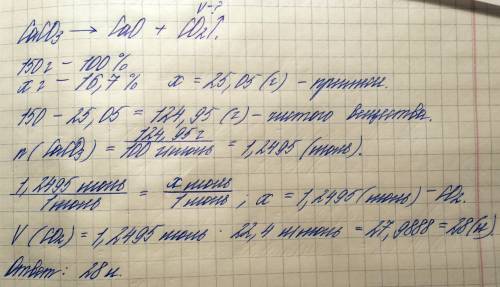 V-?
CaCO₃ → CaO + CO₂↑.
150 г – 100 %
x г – 16,7 % x = 25,05 (г) – примеси.
150 - 25,05 = 124,95 (г) – чистого вещества.
n (CaCO₃) = 124,95 г / 100 г/моль = 1,2495 (моль).
1,2495 моль / 1 моль = x моль / 1 моль ; x = 1,2495 (моль) – CO₂.
V (CO₂) = 1,2495 моль · 22,4 л/моль = 27,9888 = 28 (л)
Ответ: 28 л.